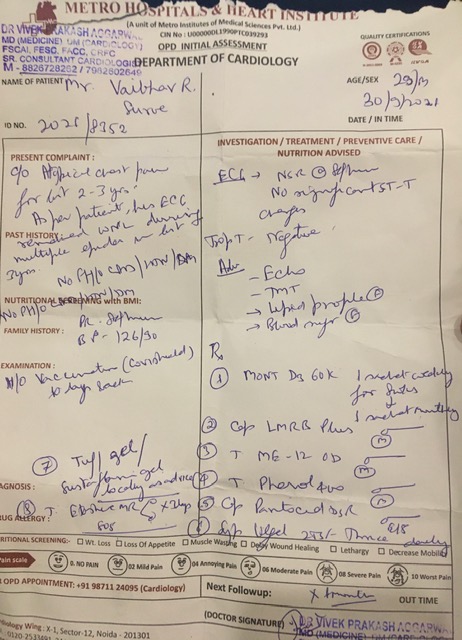 METRO HOSPITALS & HEART INSTITUTE
(A unit of Metro Institutes of Medical Sciences Pvt. Ltd.)
CIN No : U00000DL1990PTC039293
OPD INITIAL ASSESSMENT
DEPARTMENT OF CARDIOLOGY
QUALITY CERTIFICATIONS
DR VIVEK PRAKASH AGGARWAL
MD (MEDICINE) DM (CARDIOLOGY)
FSCAI, FESC, FACC, CRFC
SR. CONSULTANT CARDIOLOGIST
M - 8826728252 / 7982602649
NAME OF PATIENT Mr. Vaibhav R.
Surve
AGE/SEX 29/M
30/9/2021
DATE / IN TIME
ID NO. 2021/8352
PRESENT COMPLAINT :
c/o Atypical chest pain
for last 2-3 yrs.
As per patient, his ECG
remained WNL during
PAST HISTORY :
multiple episodes in last
3 yrs
No PH/O CAD/HTN/DM
NUTRITIONAL SCREENING with BMI:
No PH/O CAD/HTN/DM
PR-
FAMILY HISTORY :
BP - 126/90
EXAMINATION :
H/O Vaccination (Covishield)
10 days back
INVESTIGATION / TREATMENT / PREVENTIVE CARE /
NUTRITION ADVISED
ECG → NSR @
No significant ST-T
changes
Trop T - Negative
Adv
- Echo
- TMT
→ Lipid profile (F)
→ Blood sugar (F)
Rx
① MONT D3 60K 1 sachet weekly
for 8 wks
↓
1 sachet monthly
② Cap LMRB Plus
③ T ME-12 OD
④ T Phenol 400
⑤ Cp Pantocid DSR
⑥ Syp 2tsf - Thrice daily
⑦ Tuff gel/
gel
locally as advised
AGNOSIS :
⑧ T. MR
DRUG ALLERGY :
TRITIONAL SCREENING: Wt. Loss Loss Of Appetite Muscle Wasting Delay Wound Healing Lethargy Decrease Mobility
Pain scale 0. NO PAIN 02 Mild Pain 04 Annoying Pain 06 Moderate Pain 08 Severe Pain 10 Worst Pain
OPD APPOINTMENT: +91 98711 24095 (Cardiology)
Next Followup: x 1 month
OUT TIME
(DOCTOR SIGNATURE)
DR VIVEK PRAKASH AGGARWAL
MD (MEDICINE) DM (CARDIOLOGY)
diology Wing : X-1, Sector-12, Noida - 201301